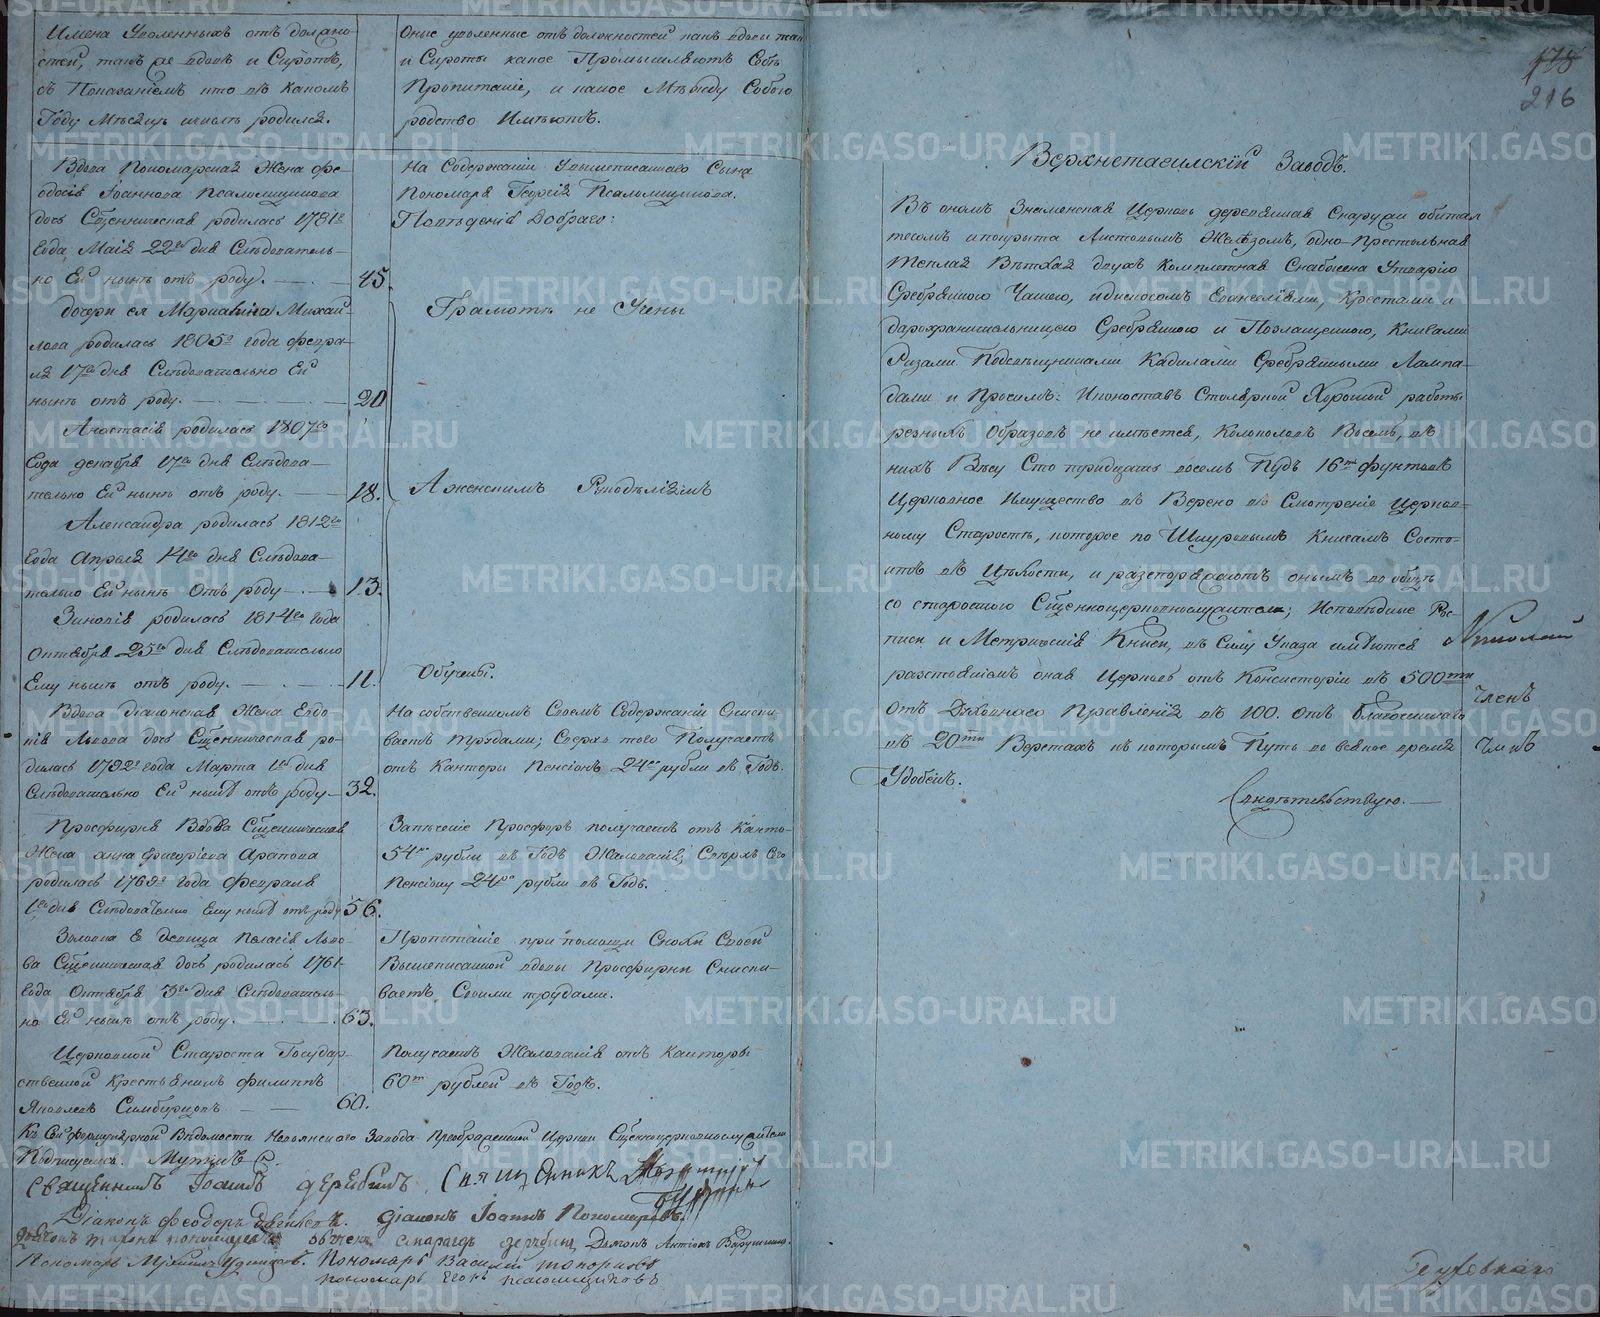 Имена Уволенныхъ отъ должно-
стей, такъ же вдовъ и Сиротъ,
съ Показаніемъ кто въ какомъ
Году Мѣсяцѣ и числѣ родился.
Оные уволенные отъ должностей какъ вдовы такъ
и Сироты какое Промышляютъ Себѣ
Пропитаніе, и какое Между Собою
родство Имѣютъ.
Вдова Пономарская Жена Фе-
одосія Іоаннова Псаломщикова
дочь Сщенническая родилась 1781го
Года Маія 22го дня Слѣдователь-
но Ей нынѣ отъ роду. 45.
На Содержаніи Упписаннаго Сына
Пономаря Георгія Псаломщикова.
Поведенія Добраго:
дочери ея Маріамна Михай-
лова родилась 1805го года февра-
ля 17го дня Слѣдовательно Ей
нынѣ отъ роду. 20
Грамотѣ не Учены
Анастасія родилась 1807го
Года декабря 17го дня Слѣдова-
тельно Ей нынѣ отъ роду. 18.
А женскимъ Рукодѣліямъ
Александра родилась 1812го
Года Апреля 14го дня Слѣдова-
тельно Ей нынѣ Отъ роду 13.
Зиновія родилась 1814го года
Октября 25го дня Слѣдовательно
Ему нынѣ отъ роду. 11.
Обучены.
Вдова Діаконская Жена Евдо-
кія Львова дочь Сщенническая ро-
дилась 1792го года Марта 1го дня
Слѣдовательно Ей нынѣ отъ роду 32.
На собственномъ Своемъ Содержаніи Снискы-
ваетъ трудами; Сверхъ того Получаетъ
отъ Канторы Пенсіонъ 24ре рубли въ Годъ.
Просфирня Вдова Сщенническая
Жена Анна Григоріева Арапова
родилась 1769го года Февраля
1го дня Слѣдовательно Ему нынѣ отъ роду 56.
Запеченіе Просфоръ получаетъ отъ Канто-
54ре рубли въ Годъ Жалованія; Сверхъ Сего
Пенсіону 24ре рубли въ Годъ.
Золовка Ея девица Пелагія Льво-
ва Сщенническая дочь родилась 1761
Года Октября 3го дня Слѣдователь-
но Ей нынѣ отъ роду. 63.
Пропитаніе при помощи Снохи Своей
Вышеписанной вдовы Просфирни Снискы-
ваетъ Своими трудами.
Церковной Староста Государ-
ственной Крестьянинъ Филиппъ
Яковлевъ Симбирцовъ 60.
Получаетъ Жалованія отъ Канторы
60тъ рублей въ Годъ.
Къ Сей формулярной Вѣдомости Невьянскаго Завода Преображенской Церкви Сщенноцерковнослужители
Подписуемся.
Священникъ Іоаннъ Дерябинъ. Священникъ
Діаконъ Феодоръ діаконъ Іоаннъ Пономаревъ.
Пономарь Михаилъ Удинцовъ. Пономарь Василій Топорковъ
пономарь Егоръ псаломщиковъ
175
216
Верхнетагилскій Заводъ.
Въ ономъ Знаменская Церковь деревянная Снаружи обитая
тесомъ и покрыта Листовымъ Желѣзомъ, одно-Престольная
теплая Вѣтхая двухъ Комплетная Снабжена Утварію
Сребряною Чашею, и дискосомъ Евангеліями, Крестами и
дарохранительницею Сребряною и Позлащенною, Книгами
Ризами Подсвѣщниками Кадилами Сребряными Лампа-
дами и Прочимъ: Иконостасъ Столярной Хорошой работы
резнымъ Образовъ не имѣется, Колоколовъ Восемь, въ
нихъ Вѣсу Сто тридцать восемь Пудъ 16ть фунтовъ
Церковное Имущество въ Вѣрено въ Смотреніе Церков-
ному Старостѣ, которое по Шнуровымъ Книгамъ Состо-
итъ въ Цѣлости, и разспоряжаютъ онымъ во обще
со старостою Сщенноцерковнослужители; Исповѣдные Рос-
писи и Метрическія Книги, въ Силу Указа имѣются
разстояніемъ оная Церковь отъ Консисторіи въ 500тъ
отъ Духовнаго Правленія въ 100. отъ Благочиннаго
въ 20ти Верстахъ къ которымъ Путь во всякое время
Удобенъ.
Свидѣтельствую.
Николай
Членъ
Духовнаго
METRIKI.GASO-URAL.RU